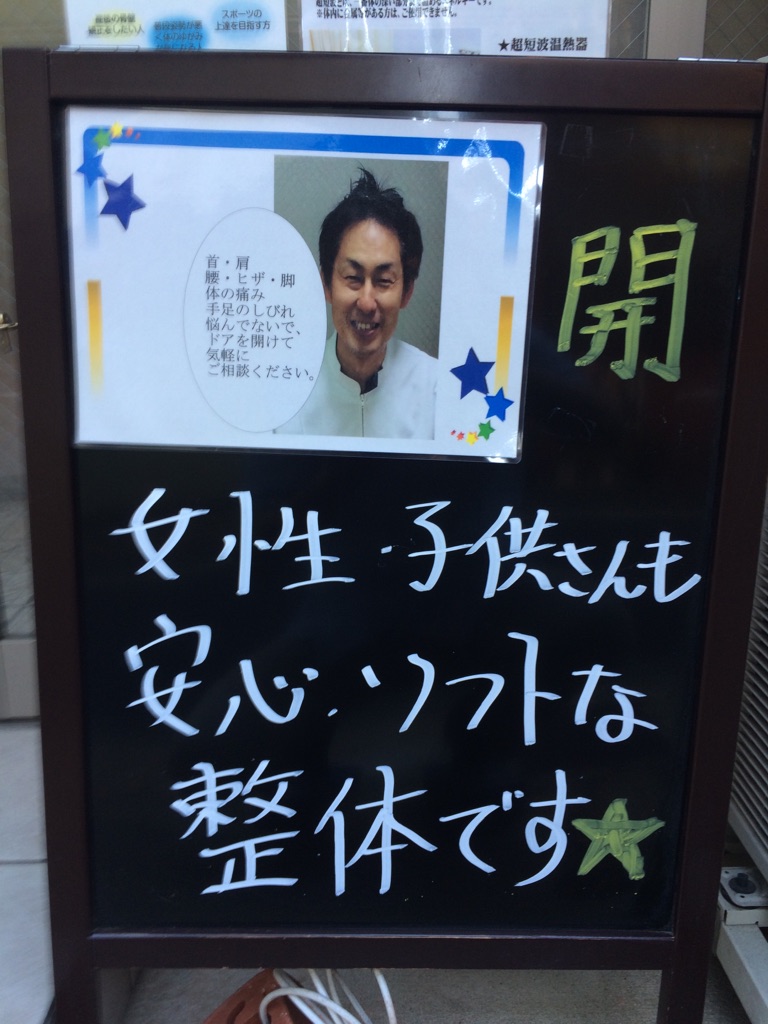 スポーツの
上達を目指す方
★超短波温熱器
首・肩
腰・ヒザ・脚
体の痛み
手足のしびれ
悩んでないで、
ドアを開けて
気軽に
ご相談ください。
開
女性・子供さんも
安心.ソフトな
整体です★